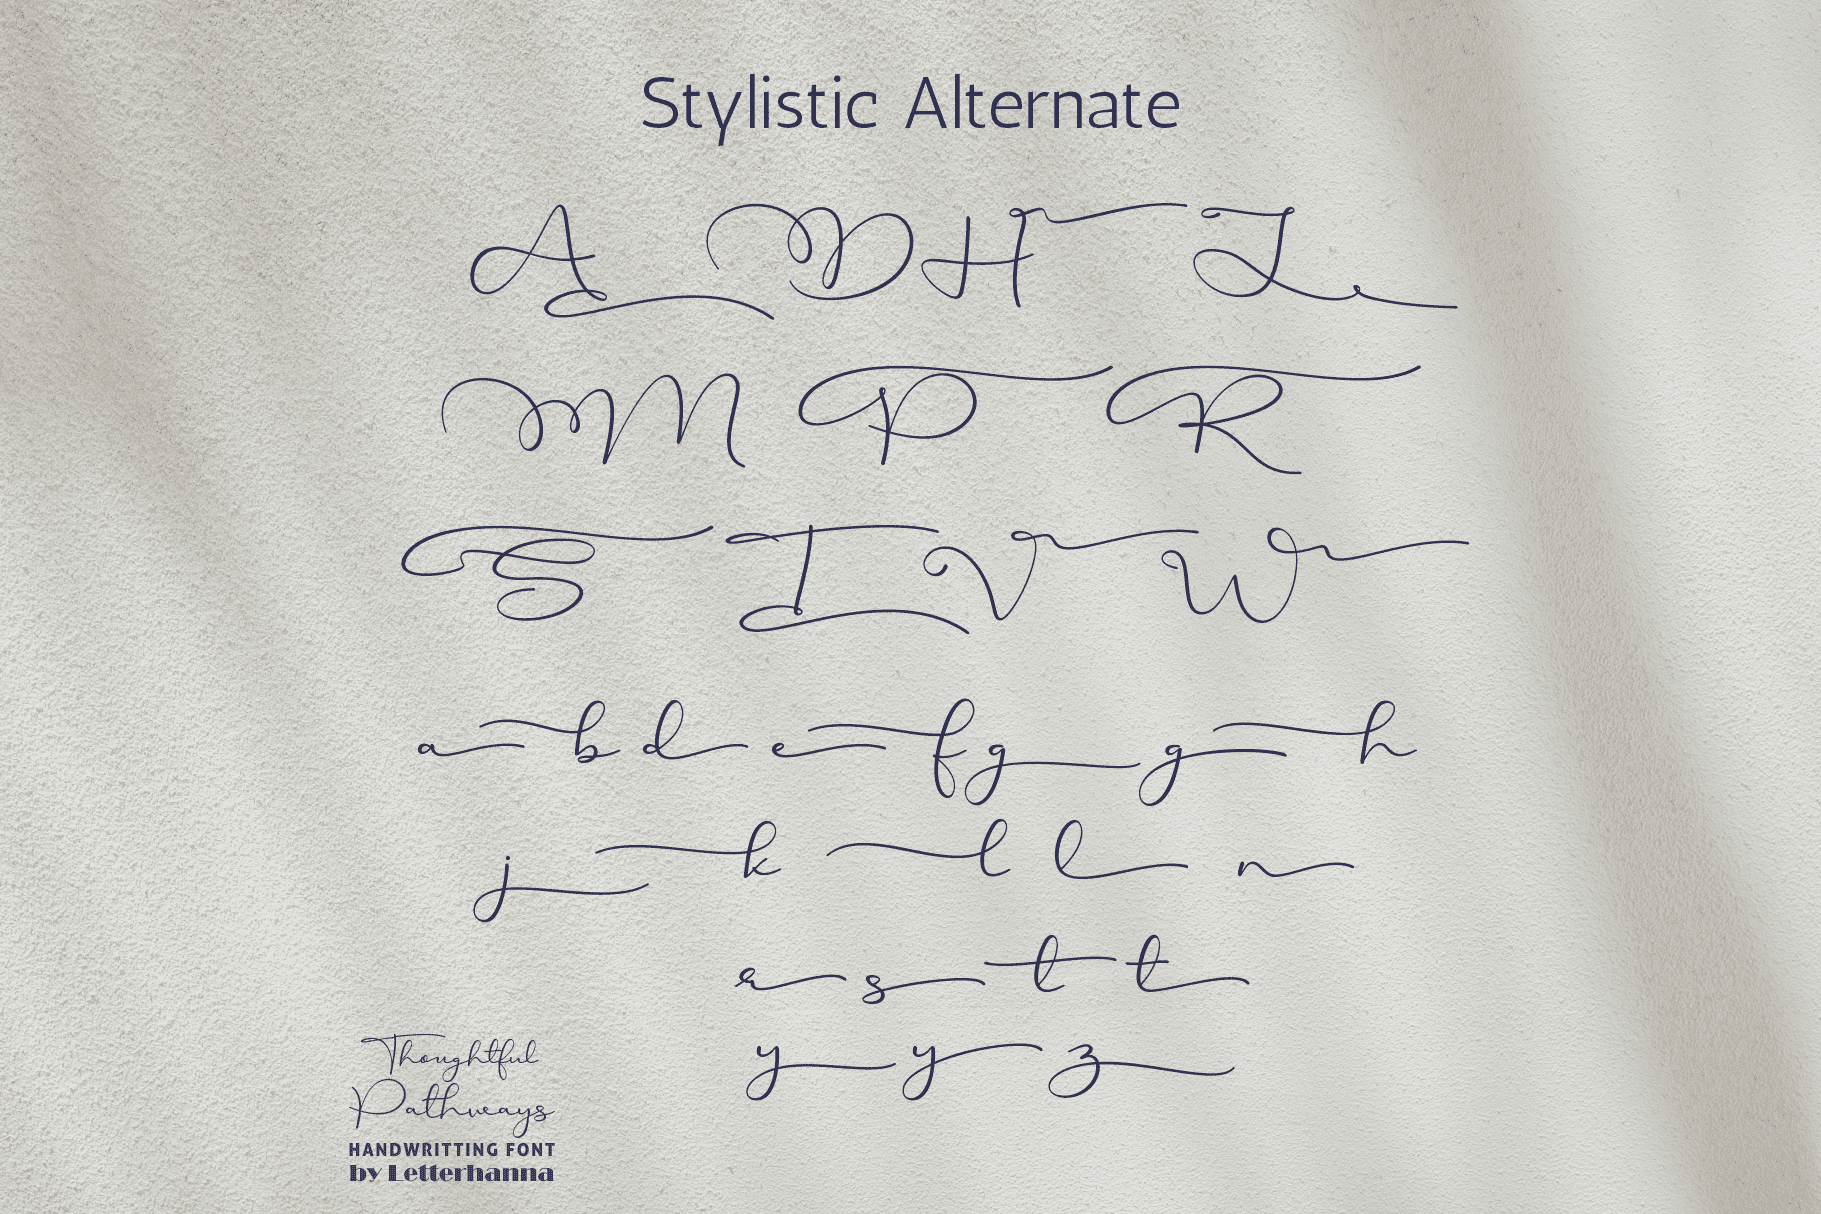 Stylistic Alternate
A D H L
M P R
S T V W
a b d e f g g h
j k l l n
r s t t
y y z
Thoughtful
Pathways
HANDWRITTING FONT
by Letterhanna